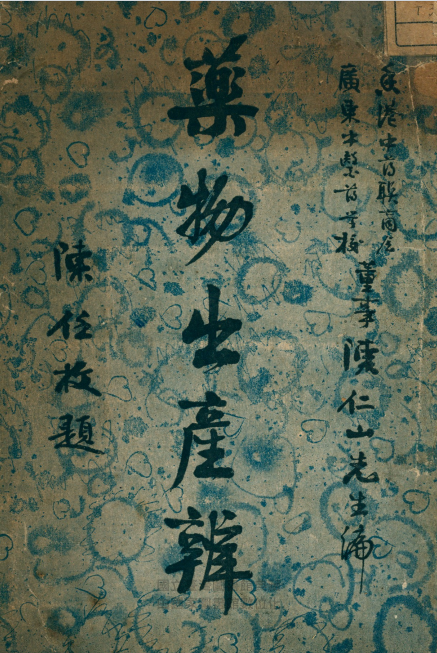 香港中葯聯商会
廣東中醫葯学校
董事陳仁山先生編
藥物出產辨
陳任枚題